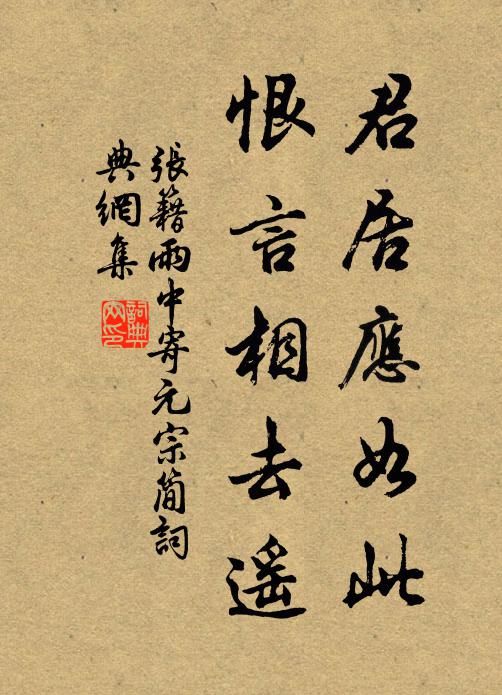 君居應如此
恨言相去遥
張籍雨中寄元宗簡詞
典網集
詞典
网印